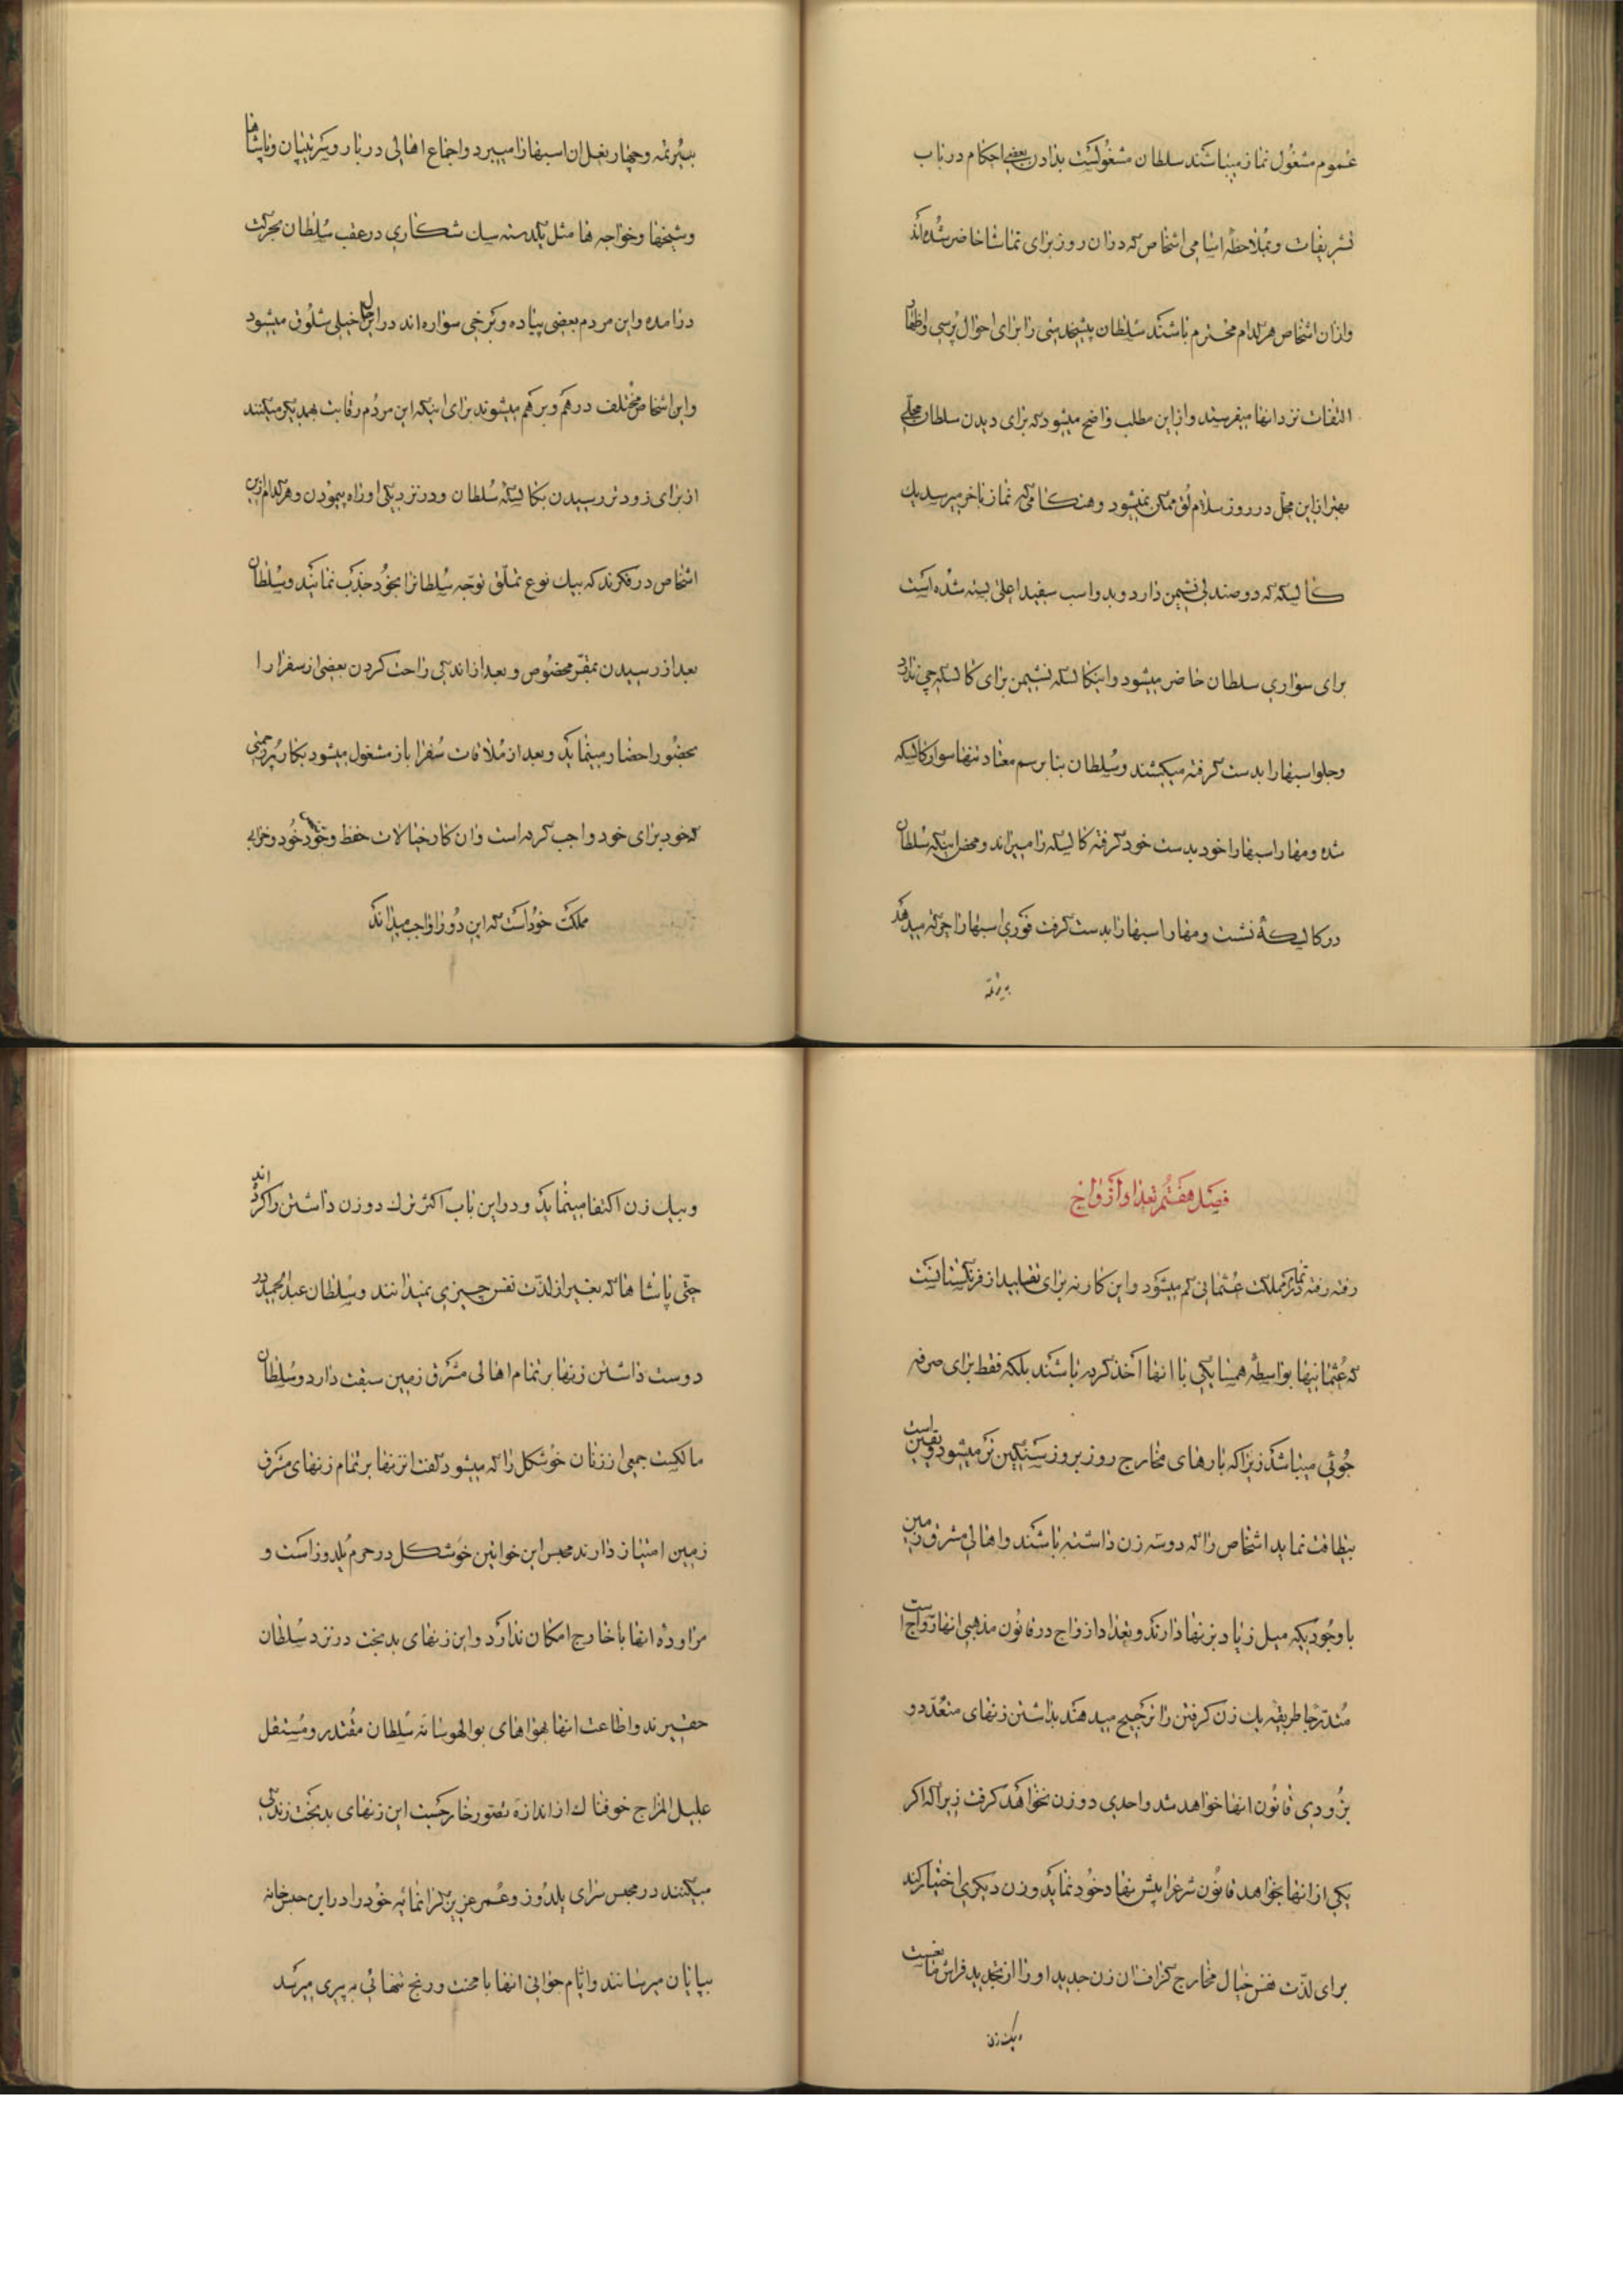 عموم مشغول نماز میباشند سلطان مشغولست بدادن بعضی احکام در باب
تشریفات و بملاحظهٔ اسامی اشخاص که در آن روز برای تماشا حاضر شده‌اند
و از آن اشخاص هر کدام محترم باشند سلطان پیشخدمتی را برای احوال پرسی و اظهار
التفات نزد آنها میفرستد و از این مطلب واضح میشود که برای دیدن سلطان محلی
بهتر از این محل در روز سلاملق ممکن نمیشود و هنگامی که نماز بآخر میرسد یک
کالسکه که دو صندلی نشیمن دارد و بدو اسب سفید اعلی بسته شده است
برای سواری سلطان حاضر میشود و اینکالسکه نشیمن برای کالسکه چی ندارد
و جلو اسبها را بدست گرفته میکشند و سلطان بنا برسم معتاد تنها سوار کالسکه
شده و مهار اسبها را خود بدست خود گرفته کالسکه را میراند و محض اینکه سلطان
در کالسکه نشست و مهار اسبها را بدست گرفت فوری اسبها را حرکت میدهد
به یرتمه
بیرتمه و چهار بغل آن اسبها را میبرد و اجتماع اهالی دربار و سرتیپان و پاشاها
و شیخها و خواجه ها مثل یکدسته سک شکاری در عقب سلطان بحرکت
در آمده و این مردم بعضی پیاده و برخی سواره‌اند در این حال خیلی شلوق میشود
و این اشخاص مختلف درهم و برهم میشوند برای اینکه این مردم رقابت بهمدیگر میکنند
از برای زودتر رسیدن بکالسکه سلطان و در نزدیکی او راه پیمودن و هر کدام ازین
اشخاص در فکرند که بیک نوع تملق توجه سلطانرا بخود جذب نمایند و سلطان
بعد از رسیدن بمقر مخصوص و بعد از اندکی راحت کردن بعضی از سفرا را
بحضور احضار مینماید و بعد از ملاقات سفرا باز مشغول میشود بکار پرزحمتی
که خود برای خود واجب کرده است و آن کار خیالات حفظ وجود خود و خرابی
مملکت خود است که این دو را واجب میداند
فصل هفتم تعداد ازواج
رفته رفته در تمام مملکت عثمانی کم میشود و این کار نه برای تقلید از فرنگستانست
که عثمانیها بواسطهٔ همسایگی با آنها اخذ کرده باشند بلکه فقط برای صرفه
جوئی میباشد زیرا که بارهای مخارج روز بروز سنگین تر میشود و یقین است
بیطاقت نماید اشخاص را که دو سه زن داشته باشند و اهالی مشرق زمین
با وجودیکه میل زیاد بزنها دارند و تعداد ازواج در قانون مذهبی آنها رواج است
متدرجا طریقه یک زن گرفتن را ترجیح میدهند بداشتن زنهای متعدد و
بزودی قانون آنها خواهد شد و احدی دو زن نخواهد گرفت زیرا که اگر
یکی از آنها بخواهد قانون شرعرا پیش نهاد خود نماید و زن دیگری اختیار کند
برای لذت نفس خیال مخارج گزاف آن زن جدید او را از تجدید فراش مانعست
و بیک زن
و بیک زن اکتفا مینماید و در این باب اکثر ترک دو زن داشتن را کرده اند
حتی پاشاها که بغیر از لذت نفس چیزی نمیدانند و سلطان عبدالحمید در
دوست داشتن زنها بر تمام اهالی مشرق زمین سبقت دارد و سلطان
مالکست جمعی از زنان خوشکل را که میشود گفت انزنها بر تمام زنهای مشرق
زمین امتیاز دارند محبس این خوانین خوشکل در حرم یلدوز است و
مراوده آنها با خارج امکان ندارد و این زنهای بدبخت در نزد سلطان
حقیرند و اطاعت آنها بهواهای بوالهوسانه سلطان مقتدر و مستقل
علیل المزاج خوفناک از اندازه تصور خارجست این زنهای بدبخت زندگی
میکنند در محبس سرای یلدوز و عمر عزیز گرانمایه خود را در این حبس خانه
بپایان میرسانند و ایام جوانی آنها با محنت و رنج تنهائی به پیری میرسد